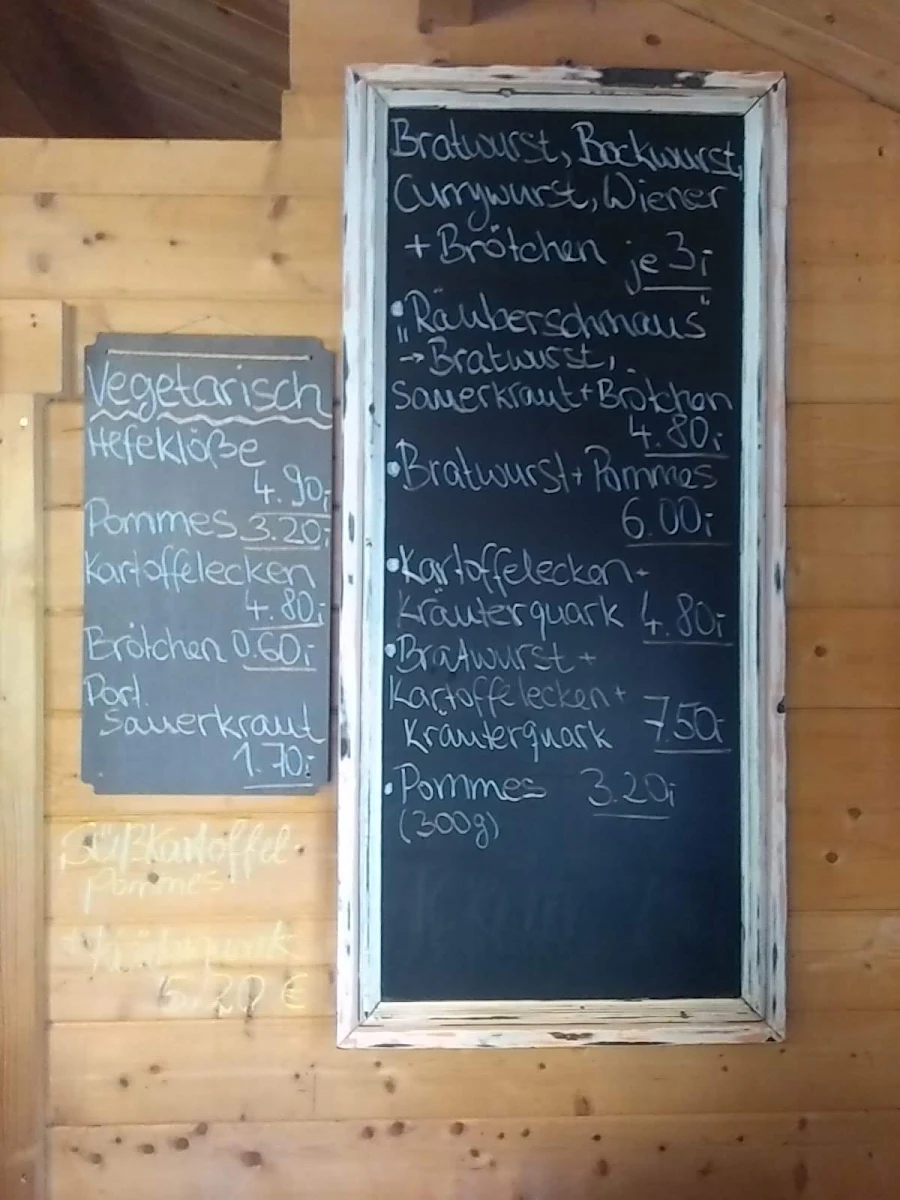 Vegetarisch
Hefeklöße
4.90,-
Pommes 3.20,-
Kartoffelecken
4.80,-
Brötchen 0.60,-
Port.
Sauerkraut
1.70,-
Süßkartoffel-
pommes
+ Kräuterquark
5.20 €
Bratwurst, Bockwurst,
Currywurst, Wiener
+ Brötchen je 3,-
• „Räuberschmaus"
→ Bratwurst,
Sauerkraut + Brötchen
4.80,-
• Bratwurst + Pommes
6.00,-
• Kartoffelecken +
Kräuterquark 4.80,-
• Bratwurst +
Kartoffelecken +
Kräuterquark 7.50,-
• Pommes 3.20,-
(300g)